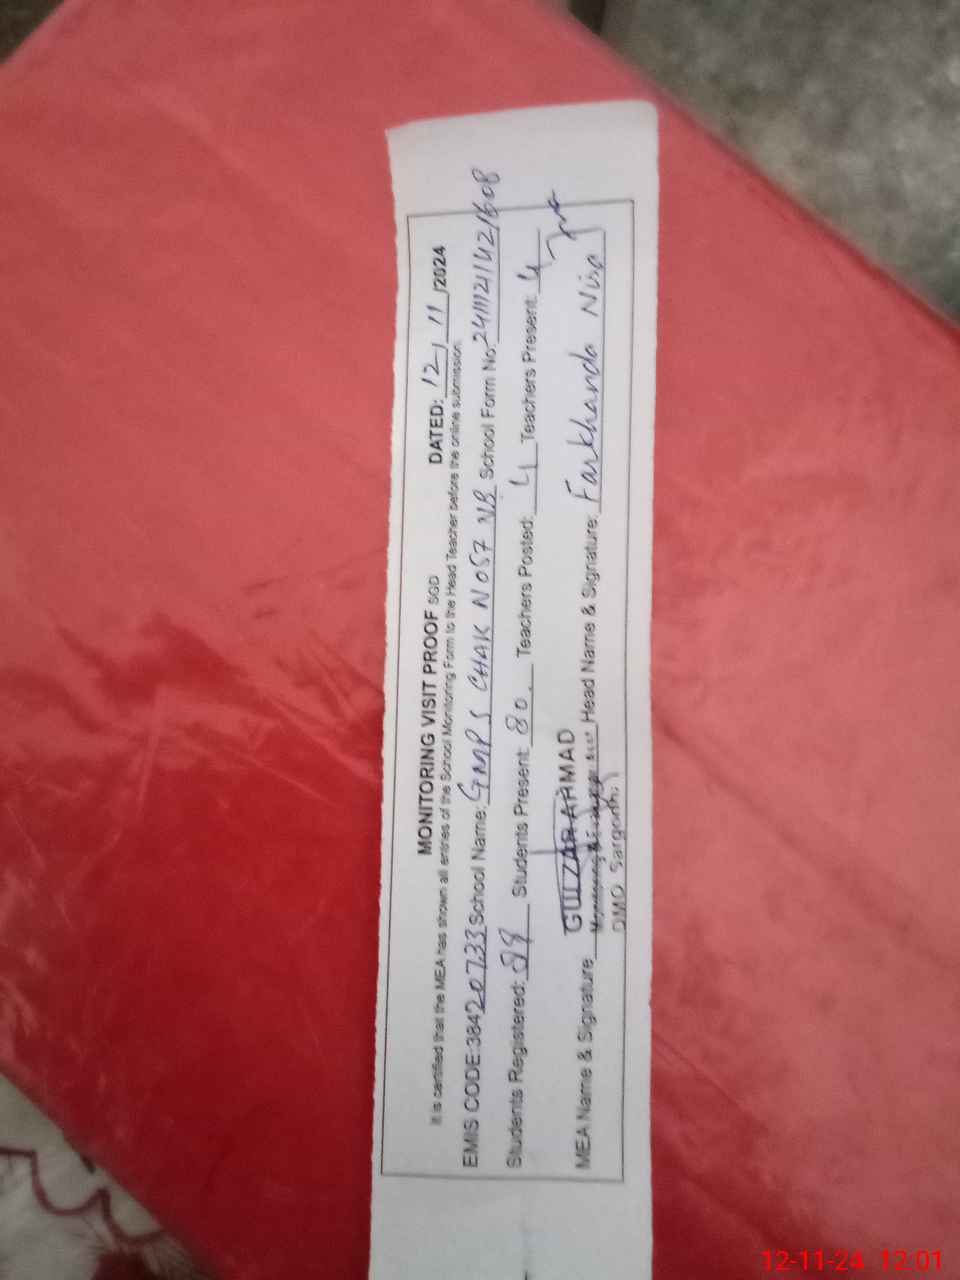 MONITORING VISIT PROOF SGD DATED: 12/11/2024
It is certified that the MEA has shown all entries of the School Monitoring Form to the Head Teacher before the online submission.
EMIS CODE:38420733 School Name: GMPS CHAK NO57 NB School Form No: 24111211421608
Students Registered: Students Present: 80 Teachers Posted: 4 Teachers Present: 4
MEA Name & Signature GULZAR AHMAD Head Name & Signature: Farkhanda Nisa
DMO Sargodha
12-11-24 12:01